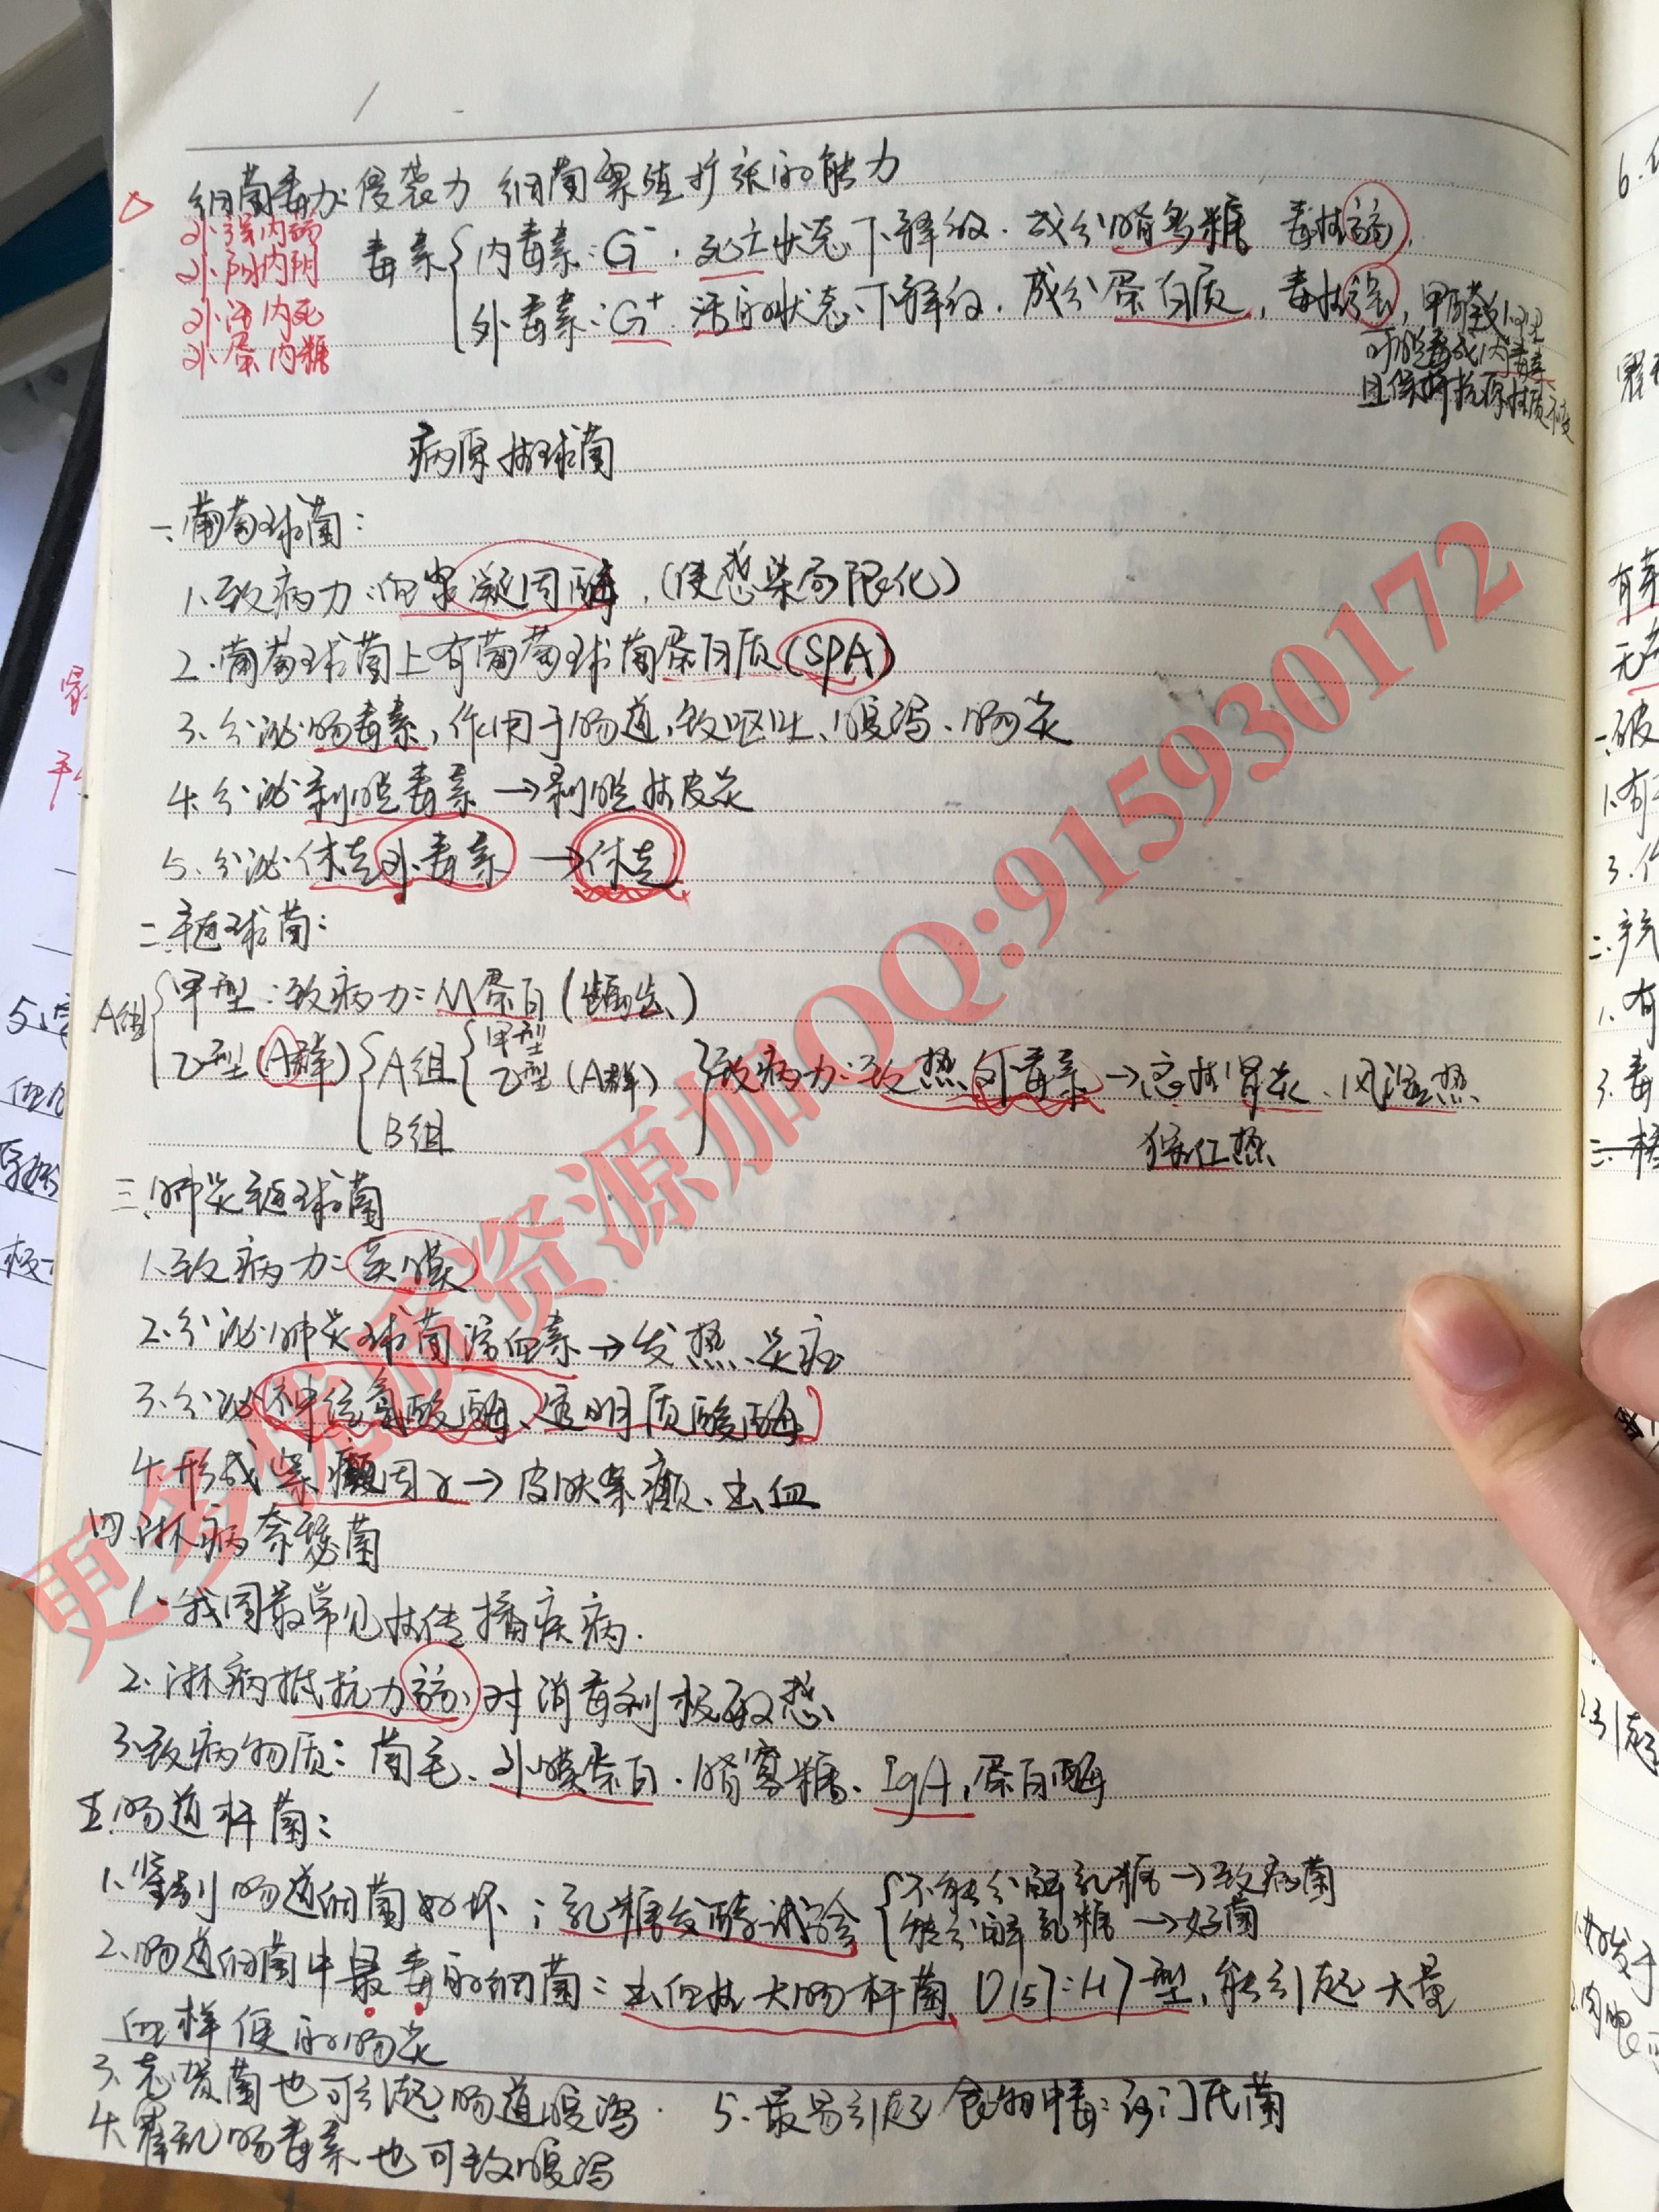 细菌毒力:侵袭力 细菌繁殖扩张的能力
外强内弱
外阳内阴
外活内死
外蛋内糖
毒素 内毒素:G⁻.死亡状态下释放.成分脂多糖 毒性弱.
外毒素:G⁺.活的状态下释放.成分蛋白质,毒性强,甲醛
可脱毒成
且保持抗原性质不变
病原性球菌
一、葡萄球菌:
1、致病力:血浆凝固酶,(使感染局限化)
2.葡萄球菌上有葡萄球菌蛋白质(SPA)
3.分泌肠毒素,作用于肠道,致呕吐、腹泻、肠炎
4.分泌剥脱毒素→剥脱性皮炎
5.分泌休克外毒素→休克
二、链球菌:
A组 甲型:致病力:M蛋白(龋齿)
乙型(A群) A组 甲型
乙型(A群)
B组
致病力:致热外毒素→急性肾炎、风湿热
猩红热
三、肺炎链球菌
1.致病力:荚膜
2.分泌肺炎球菌溶血素→发热、炎症
3.分泌神经氨酸酶、透明质酸酶
4.形成紫癜因子→皮肤紫癜、出血
四、淋病奈瑟菌
1、我国最常见性传播疾病.
2、淋病抵抗力弱,对消毒剂极敏感
3.致病物质:菌毛、外膜蛋白.脂寡糖、IgA,蛋白酶
五.肠道杆菌:
1.鉴别肠道细菌好坏:乳糖发酵试验 不能分解乳糖→致病菌
能分解乳糖→好菌
2、肠道细菌中最毒的细菌:出血性大肠杆菌O157:H7型,能引起大量
血样便的肠炎
3.志贺菌也可引起肠道腹泻. 5.最易引起食物中毒:沙门氏菌
4.霍乱肠毒素也可致腹泻
更多优质资源加QQ:915930172